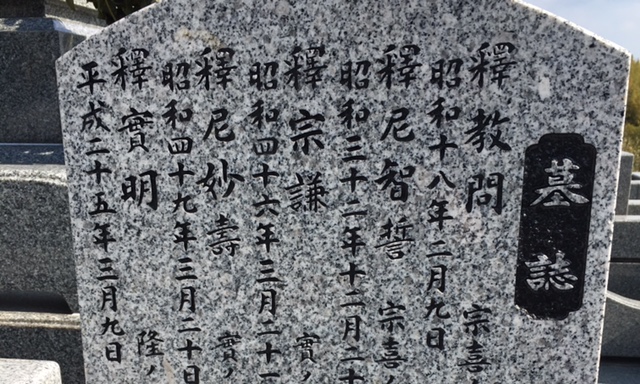 墓誌
釋教問 宗喜
昭和十八年二月九日
釋尼智誓 宗喜ノ
昭和三十二年十二月二十
釋宗謙 實ノ
昭和四十六年三月二十一
釋尼妙壽 實ノ
昭和四十九年三月二十日
釋實明 隆ノ
平成二十五年三月九日